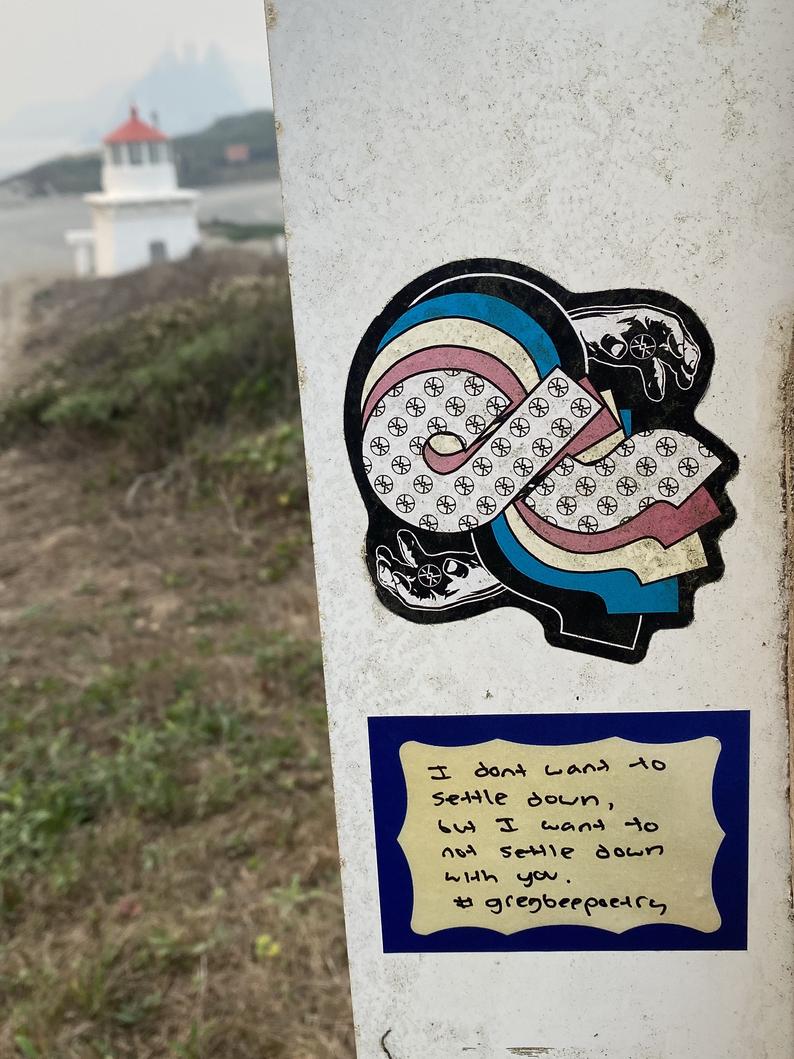 I dont want to
settle down,
but I want to
not settle down
with you.
# gregbeepoetry